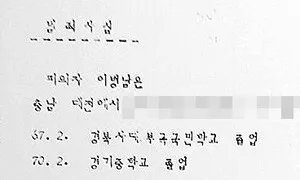 범죄사실
피의자 이범남은
충남 대전에서
67. 2. 경북사대부국국민학교 졸업
70. 2. 경기중학교 졸업